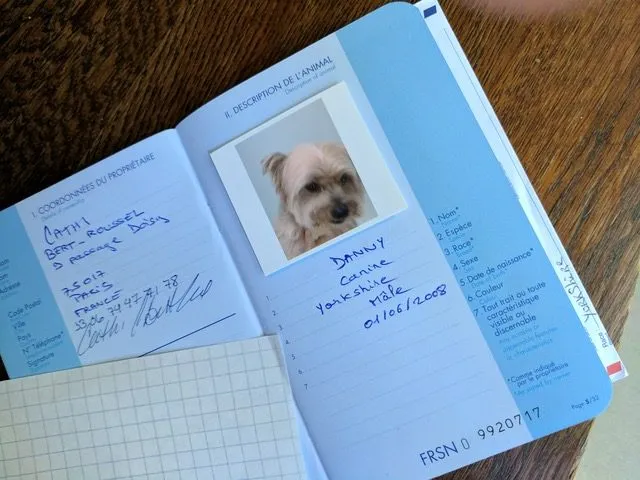 I. COORDONNÉES DU PROPRIÉTAIRE
Details of ownership
CATHI
BERT-ROUSSEL
passage Daisy
75017
PARIS
FRANCE
Adresse
Code Postal
Ville
Pays
N° Téléphone*
Signature
II. DESCRIPTION DE L'ANIMAL
Description of animal
DANNY
Canine
Yorkshire
Mâle
01/06/2008
1
2
3
4
5
6
7
1. Nom*
2. Espèce
3. Race*
4. Sexe
5. Date de naissance*
6. Couleur
7. Tout trait ou toute
caractéristique
visible ou
discernable
*Comme indiqué
par le propriétaire
*As stated by owner
Page 5/32
FRSN0 9920717
Race YORKSHIRE